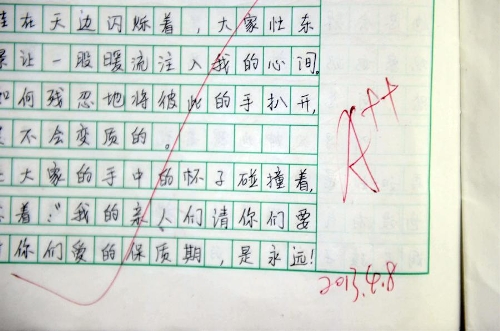 在天边闪烁着，大家性东
让一股暖流注入我的心间。
如何残忍地将彼此的手扒开，
不会变质的。
大家的手中的杯子碰撞着，
着：“我的亲人们请你们要
你们爱的保质期，是永远！
A++
2013.4.8